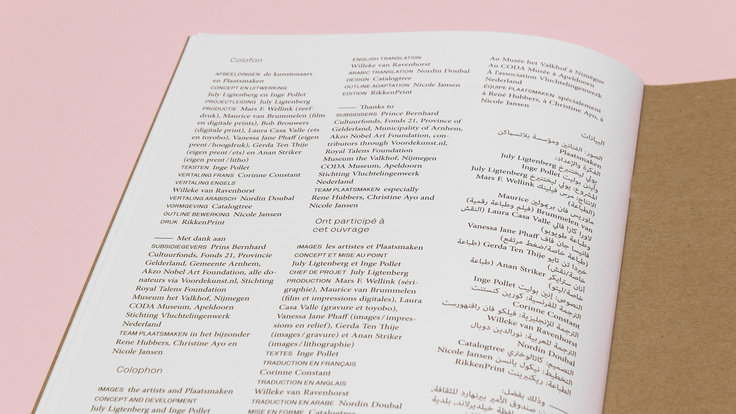 Colofon
AFBEELDINGEN de kunstenaars
en Plaatsmaken
CONCEPT EN UITWERKING
July Ligtenberg en Inge Pollet
PROJECTLEIDING July Ligtenberg
PRODUCTIE Mars F. Wellink (zeef-
druk), Maurice van Brummelen (film
en digitale prints), Rob Brouwers
(digitale print), Laura Casa Valle (ets
en toyobo), Vanessa Jane Phaff (eigen
prent / hoogdruk), Gerda Ten Thije
(eigen prent / ets) en Anan Striker
(eigen prent / litho)
TEKSTEN Inge Pollet
VERTALING FRANS Corinne Constant
VERTALING ENGELS
Willeke van Ravenhorst
VERTALING ARABISCH Nordin Doubal
VORMGEVING Catalogtree
OUTLINE BEWERKING Nicole Jansen
DRUK RikkenPrint
—— Met dank aan
SUBSIDIEGEVERS Prins Bernhard
Cultuurfonds, Fonds 21, Provincie
Gelderland, Gemeente Arnhem,
Akzo Nobel Art Foundation, alle do-
nateurs via Voordekunst.nl, Stichting
Royal Talens Foundation
Museum het Valkhof, Nijmegen
CODA Museum, Apeldoorn
Stichting Vluchtelingenwerk
Nederland
TEAM PLAATSMAKEN in het bijzonder
Rene Hubbers, Christine Ayo en
Nicole Jansen
Colophon
IMAGES the artists and Plaatsmaken
CONCEPT AND DEVELOPMENT
July Ligtenberg and Inge Pollet
ENGLISH TRANSLATION
Willeke van Ravenhorst
ARABIC TRANSLATION Nordin Doubal
DESIGN Catalogtree
OUTLINE ADAPTATION Nicole Jansen
EDITION RikkenPrint
—— Thanks to
SUBSIDIZERS Prince Bernhard
Cultuurfonds, Fonds 21, Province of
Gelderland, Municipality of Arnhem,
Akzo Nobel Art Foundation, con-
tributors through Voordekunst.nl,
Royal Talens Foundation
Museum the Valkhof, Nijmegen
CODA Museum, Apeldoorn
Stichting Vluchtelingenwerk
Nederland
TEAM PLAATSMAKEN especially
Rene Hubbers, Christine Ayo and
Nicole Jansen
Ont participé à
cet ouvrage
IMAGES les artistes et Plaatsmaken
CONCEPT ET MISE AU POINT
July Ligtenberg et Inge Pollet
CHEF DE PROJET July Ligtenberg
PRODUCTION Mars F. Wellink (séri-
graphie), Maurice van Brummelen
(film et impressions digitales), Laura
Casa Valle (gravure et toyobo),
Vanessa Jane Phaff (images / impres-
sions en relief), Gerda Ten Thije
(images / gravure) et Anan Striker
(images / lithographie)
TEXTES Inge Pollet
TRADUCTION EN FRANÇAIS
Corinne Constant
TRADUCTION EN ANGLAIS
Willeke van Ravenhorst
TRADUCTION EN ARABE Nordin Doubal
MISE EN FORME Catalogtree
Au Musée het Valkhof à Nimègue
Au CODA Musée à Apeldoorn
À l'association Vluchtelingenwerk
Nederland
ÉQUIPE PLAATSMAKEN spécialement
à René Hubbers, à Christine Ayo, à
Nicole Jansen
البيانات
الصور: الفنانين ومؤسسة بلاتسماكن
Plaatsmaken
الفكرة والإعداد:
يولي ليختنبرخ July Ligtenberg
وأينن بوليت Inge Pollet
المشروع: يولي ليختنبرخ July Ligtenberg
الإنتاج: مرس فيلينك Mars F. Wellink
(الطباعة)
ماوريس فان برومولين Maurice
van Brummelen (فيلم وطباعة رقمية)
لاورا كازا فالي Laura Casa Valle (النقش
وطباعة طويوبو)
فانيسا جان فاف Vanessa Jane Phaff
(طباعة خاصة/ضغط مرتفع)
خيردا تن تايو Gerda Ten Thije (طباعة
خاصة/نقش)
أنان سترايكر Anan Striker (طباعة
خاصة/ليتو)
النصوص: إنن بوليت Inge Pollet
الترجمة الفرنسية: كورين كنستنت
Corinne Constant
الترجمة للإنجليزية: فيلكو فان رافنهورست
Willeke van Ravenhorst
الترجمة للعربية: نورالدين دوبال
Nordin Doubal
التصميم: كاتالوختري Catalogtree
التخطيط: نيكول يانسن Nicole Jansen
الطباعة: ريكبرينت RikkenPrint
—— وذلك بفضل: